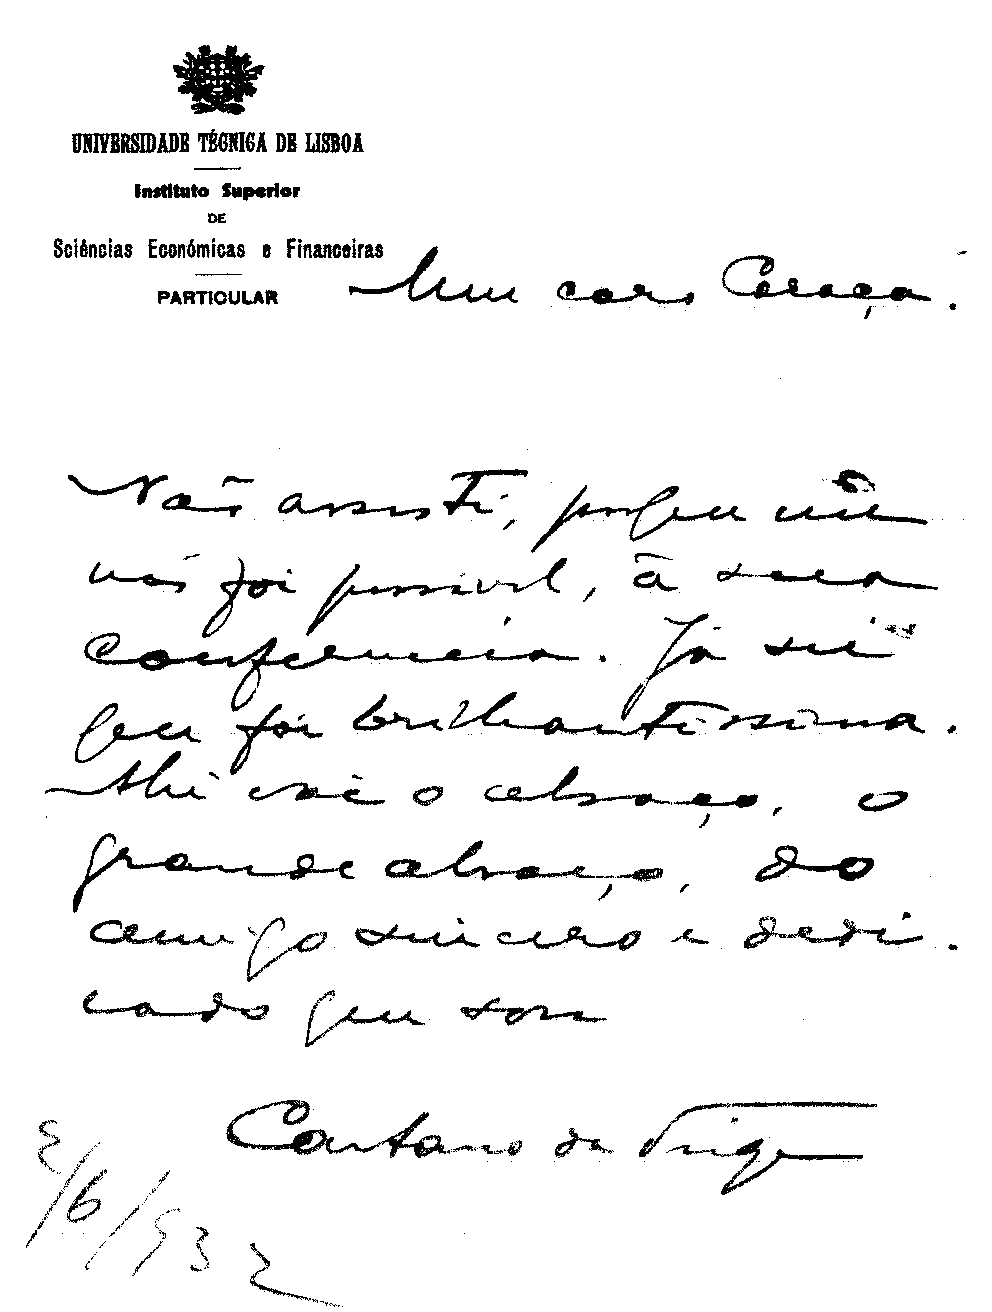 UNIVERSIDADE TÉCNICA DE LISBOA
Instituto Superior
DE
Sciências Económicas e Financeiras
PARTICULAR
Meu caro Caraça.
Não assisti, porque me
não foi possivel, à sua
conferencia. Já sei
que foi brilhantissima.
Ahi vai o abraço, o
grande abraço, do
amigo sincero e dedi-
cado que sou
Caetano da Veiga
2/6/932